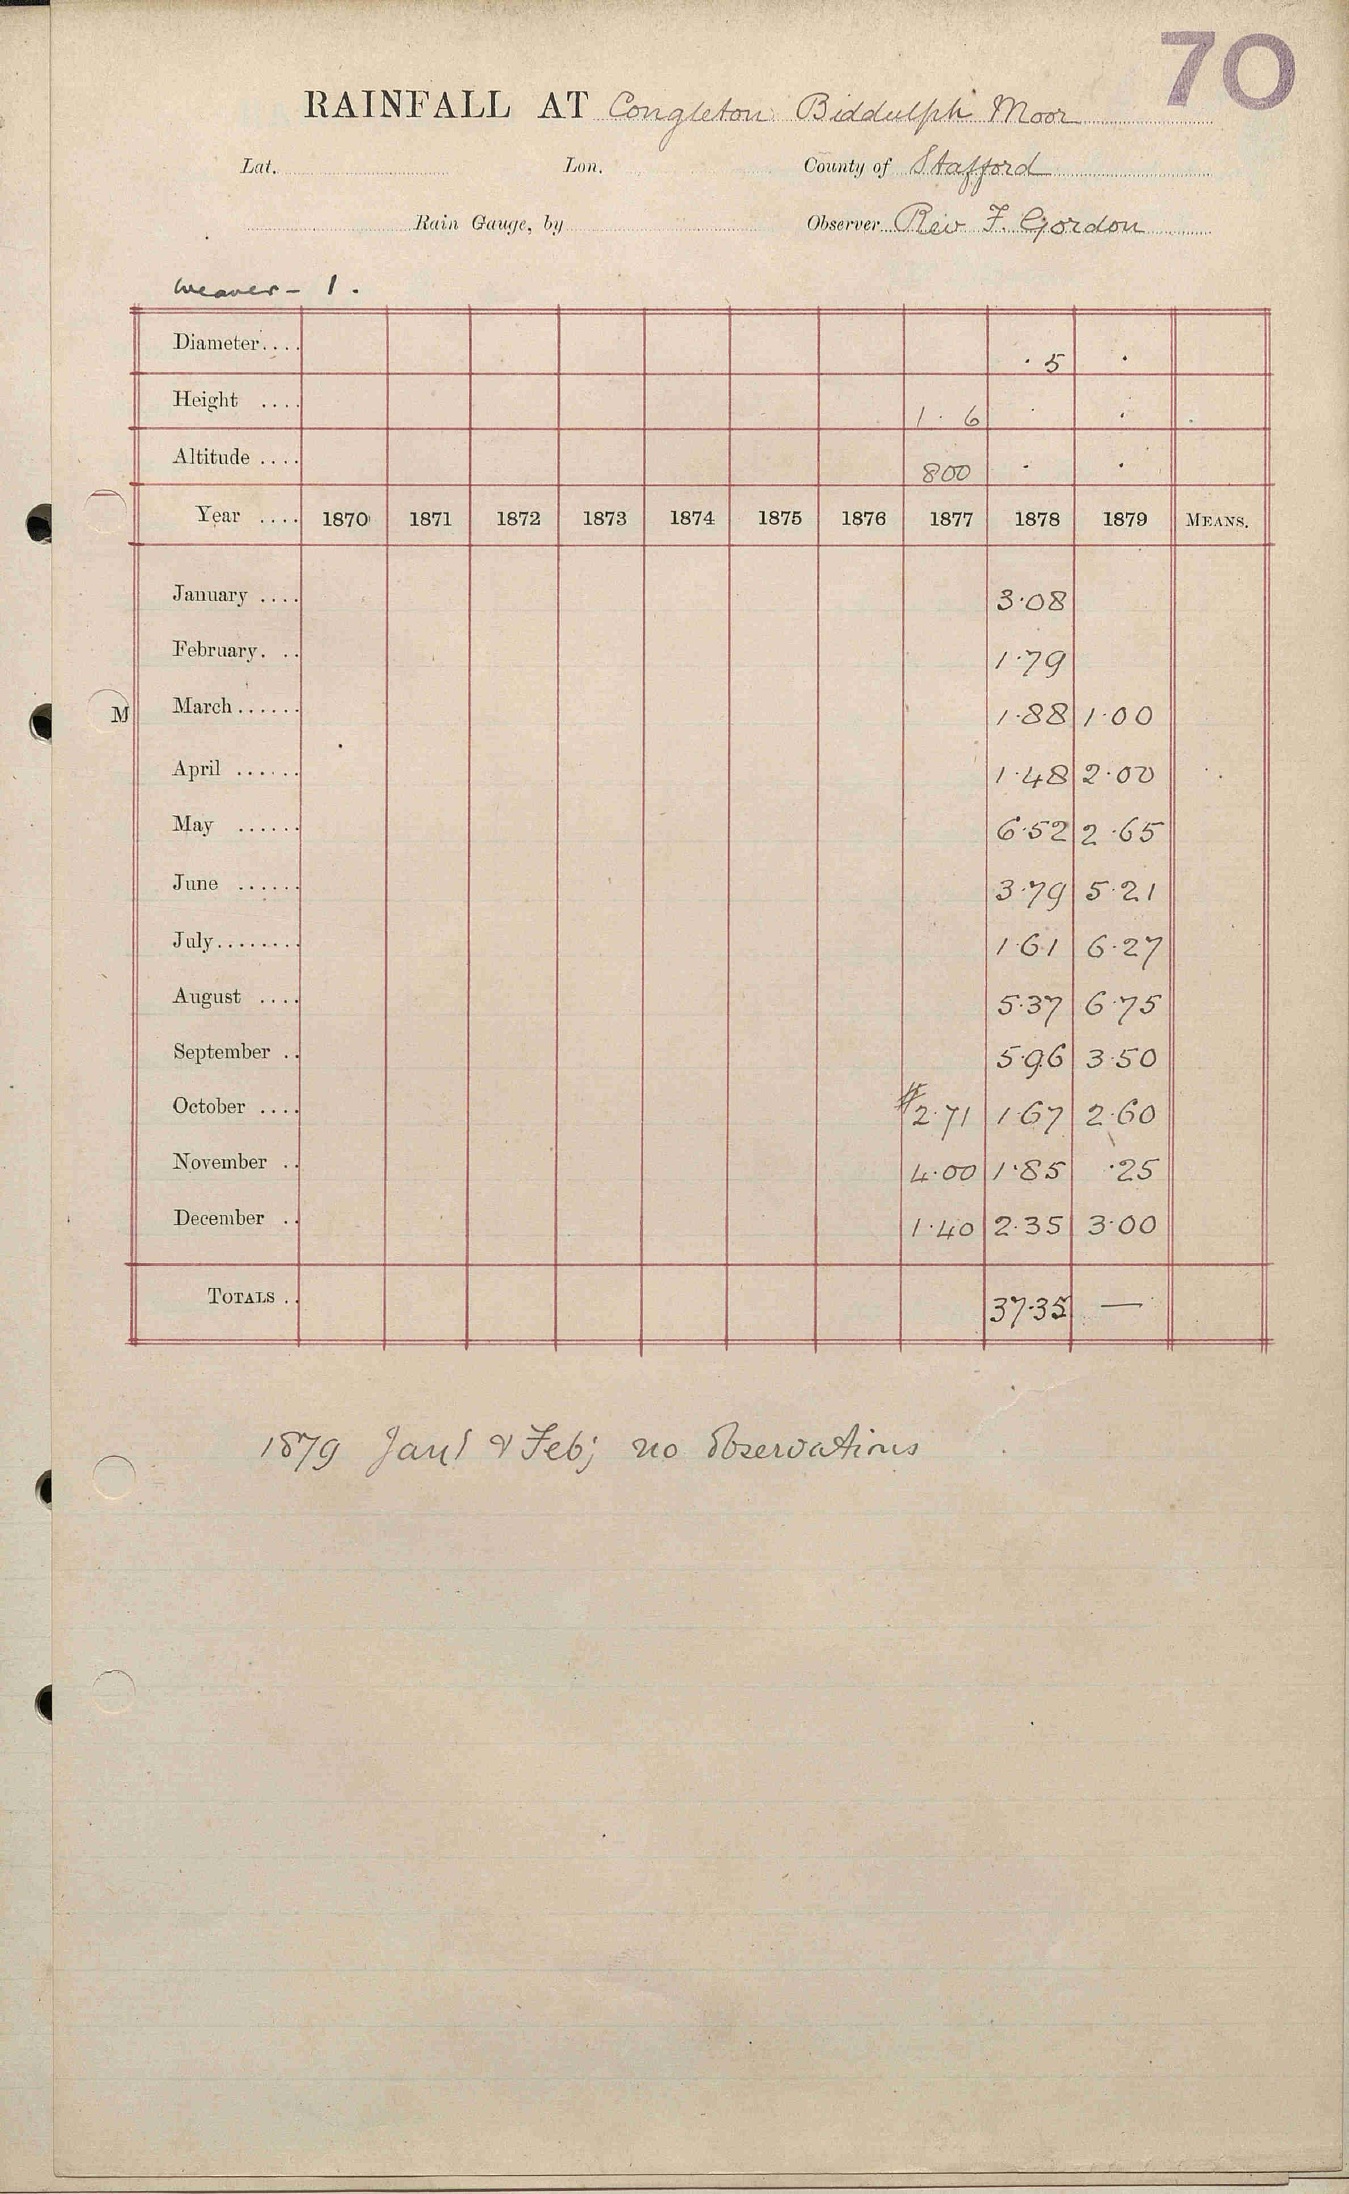 70
RAINFALL AT Congleton Biddulph Moor
Lat. Lon. County of Stafford
Rain Gauge, by Observer Rev F. Gordon
Weaver - 1.
Diameter.... · 5 ·
Height .... 1 · 6 · ·
Altitude .... 800 · ·
Year .... 1870 1871 1872 1873 1874 1875 1876 1877 1878 1879 MEANS.
January .... 3·08
February. .. 1·79
M March...... 1·88 1·00
April ...... 1·48 2·00
May ...... 6·52 2·65
June ...... 3·79 5·21
July........ 1·61 6·27
August .... 5·37 6·75
September .. 5·96 3·50
October .... #2·71 1·67 2·60
November .. 4·00 1·85 ·25
December .. 1·40 2·35 3·00
TOTALS .. 37·35 —
1879 Jany & Feb; no observations